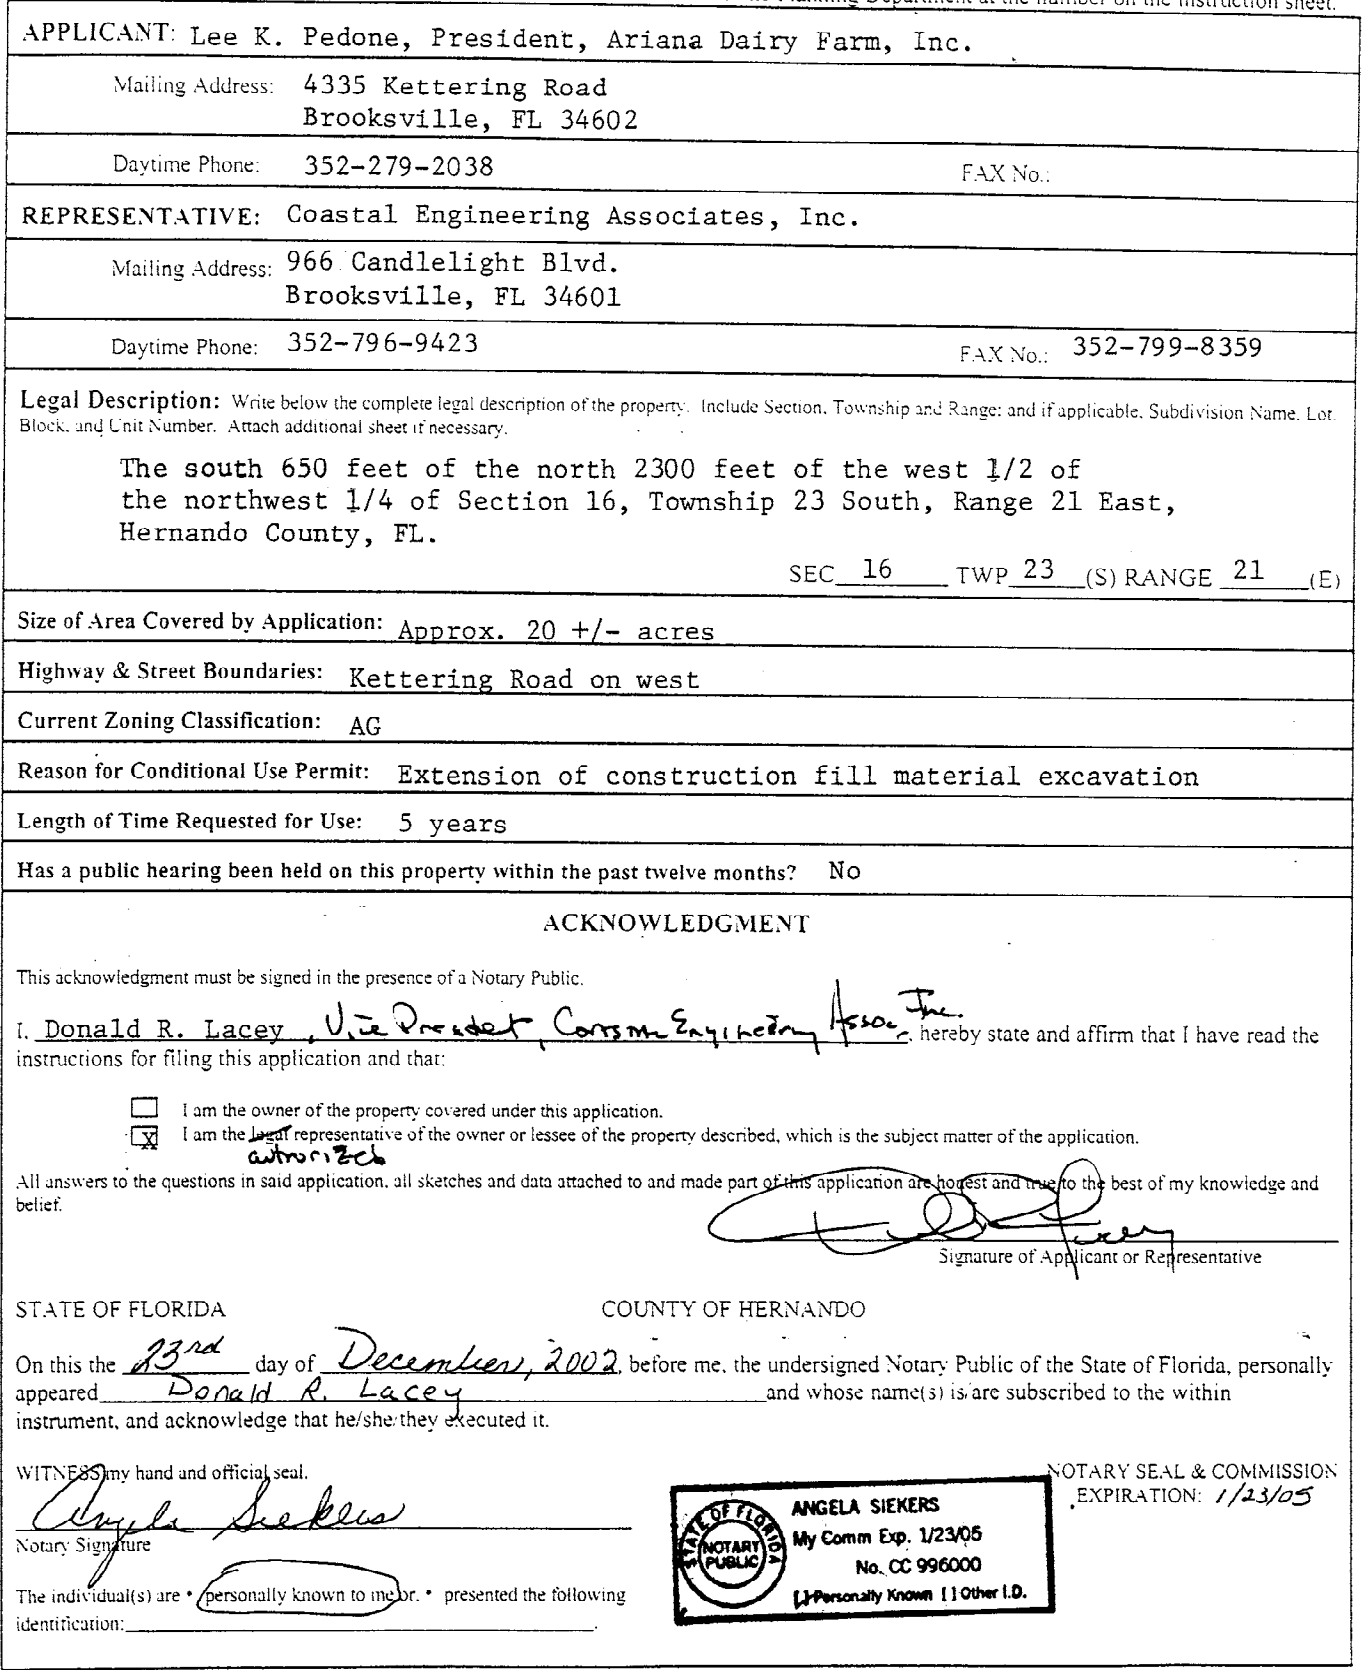 Planning Department at the number on the instruction sheet.
APPLICANT: Lee K. Pedone, President, Ariana Dairy Farm, Inc.
Mailing Address: 4335 Kettering Road
Brooksville, FL 34602
Daytime Phone: 352-279-2038 FAX No.:
REPRESENTATIVE: Coastal Engineering Associates, Inc.
Mailing Address: 966 Candlelight Blvd.
Brooksville, FL 34601
Daytime Phone: 352-796-9423 FAX No.: 352-799-8359
Legal Description: Write below the complete legal description of the property. Include Section, Township and Range; and if applicable, Subdivision Name, Lot
Block, and Unit Number. Attach additional sheet if necessary.
The south 650 feet of the north 2300 feet of the west 1/2 of
the northwest 1/4 of Section 16, Township 23 South, Range 21 East,
Hernando County, FL.
SEC 16 TWP 23 (S) RANGE 21 (E)
Size of Area Covered by Application: Approx. 20 +/- acres
Highway & Street Boundaries: Kettering Road on west
Current Zoning Classification: AG
Reason for Conditional Use Permit: Extension of construction fill material excavation
Length of Time Requested for Use: 5 years
Has a public hearing been held on this property within the past twelve months? No
ACKNOWLEDGMENT
This acknowledgment must be signed in the presence of a Notary Public.
I, Donald R. Lacey, Vice President, Coastal Engineering Assoc Inc., hereby state and affirm that I have read the
instructions for filing this application and that:
I am the owner of the property covered under this application.
X I am the legal representative of the owner or lessee of the property described, which is the subject matter of the application.
authorized
All answers to the questions in said application, all sketches and data attached to and made part of this application are honest and true to the best of my knowledge and
belief.
Signature of Applicant or Representative
STATE OF FLORIDA COUNTY OF HERNANDO
On this the 23rd day of December, 2002, before me, the undersigned Notary Public of the State of Florida, personally
appeared Donald R. Lacey and whose name(s) is/are subscribed to the within
instrument, and acknowledge that he/she/they executed it.
WITNESS my hand and official seal. NOTARY SEAL & COMMISSION
EXPIRATION: 1/23/05
Angela Siekers
Notary Signature
STATE OF FLORIDA
NOTARY PUBLIC
ANGELA SIEKERS
My Comm Exp. 1/23/05
No. CC 996000
[ ] Personally Known [ ] Other I.D.
The individual(s) are • personally known to me or, • presented the following
identification: